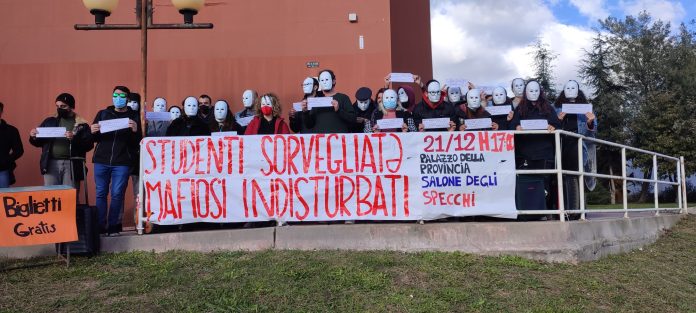 STUDENTI SORVEGLIATə
MAFIOSI INDISTURBATI
21/12 H 17
PALAZZO DELLA
PROVINCIA
SALONE DEGLI
SPECCHI
Biglietti
Gratis